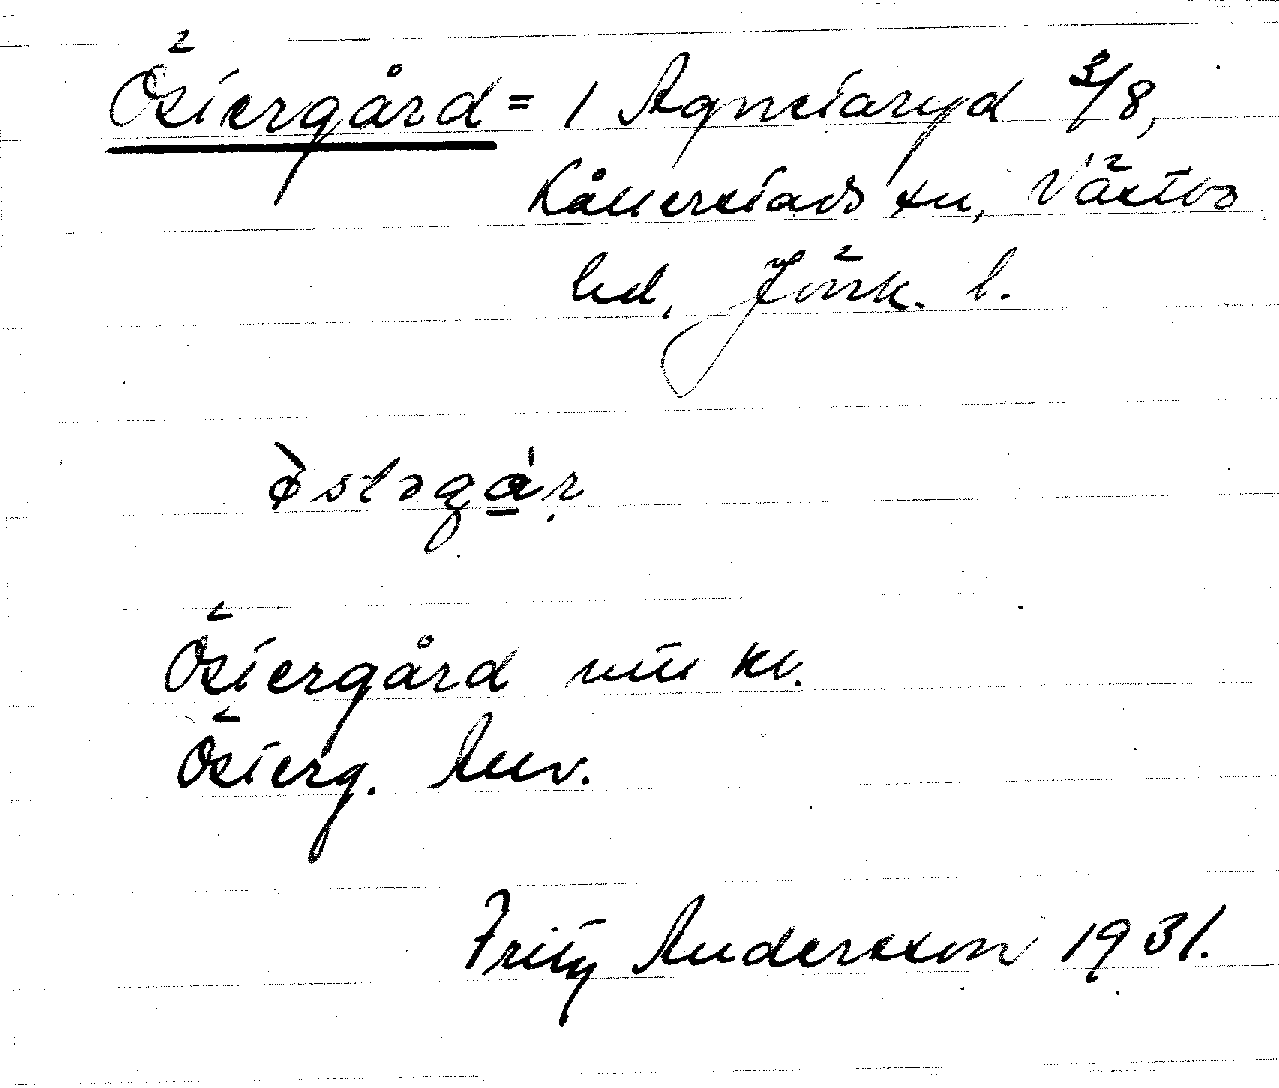 Östergård = 1 Agnetaryd 3/8,
Kållerstads sn, Västbo
hd, Jönk. l.
òstəgár
Östergård ntu kv.
Österg. Anv.
Fritz Andersson 1931.